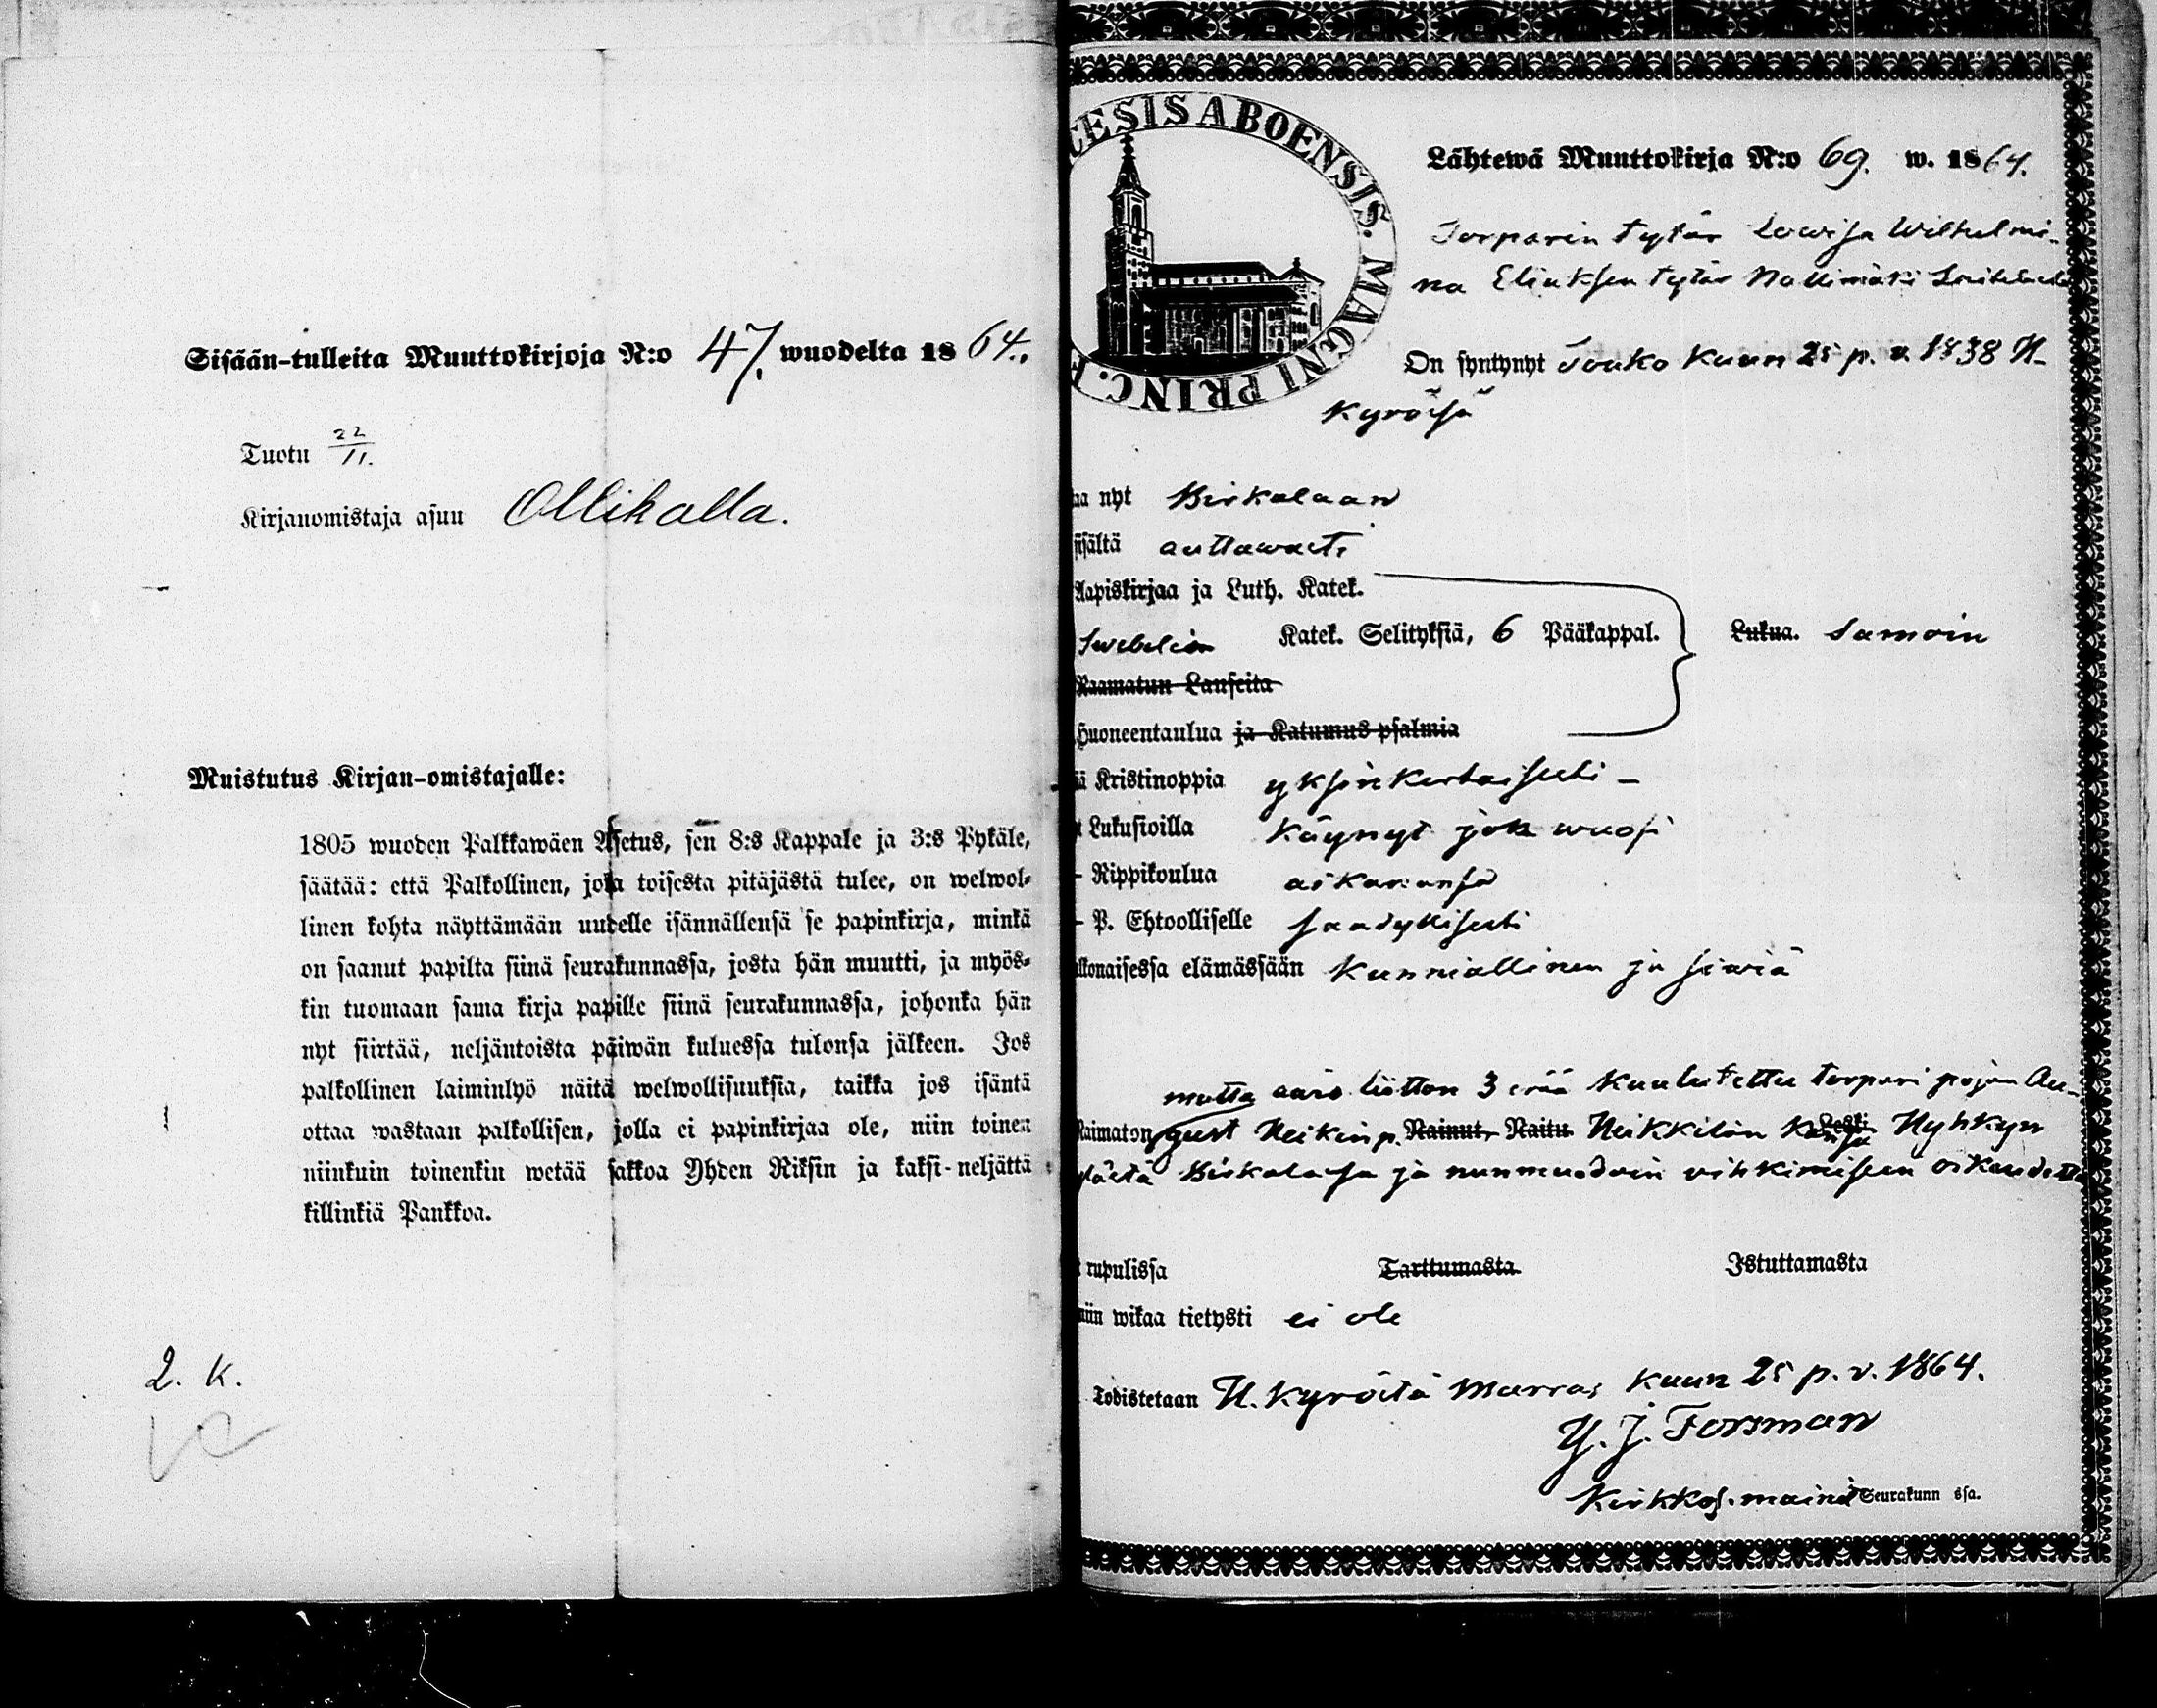 Sisään-tulleita Muuttokirjoja N:o 47. wuodelta 1864.
Tuotu 22/11.
Kirjanomistaja asuu Ollikalla.
Muistutus Kirjan-omistajalle:
1805 wuoden Palkkawäen Asetus, sen 8:s Kappale ja 3:s Pykäle,
säätää: että Palkollinen, joka toisesta pitäjästä tulee, on welwol-
linen kohta näyttämään uudelle isännällensä se papinkirja, minkä
on saanut papilta siinä seurakunnassa, josta hän muutti, ja myös-
kin tuomaan sama kirja papille siinä seurakunnassa, johonka hän
nyt siirtää, neljäntoista päiwän kuluessa tulonsa jälkeen. Jos
palkollinen laiminlyö näitä welwollisuuksia, taikka jos isäntä
ottaa wastaan palkollisen, jolla ei papinkirjaa ole, niin toinen
niinkuin toinenkin wetää sakkoa Yhden Riksin ja kaksi-neljättä
killinkiä Pankkoa.
2. K.
ESIS ABOENSIS. MAGNI PRINC. F
Lähtewä Muuttokirja N:o 69. w. 1864.
Torparin tytär Lowisa Wilhelmi-
na Eliaksen tytär Nallimäki
On syntynyt Touko Kuun 25 p. v. 1838 H.
Kyrössä
aa nyt Birkalaan
sisältä auttawasti
Aapiskirjaa ja Luth. Katek.
Swebelion Katek. Selityksiä, 6 Pääkappal. Lukua. Samoin
Raamatun Lauseita
Huoneentaulua ja Katumus psalmia
ä Kristinoppia yksinkertaisesti -
t Lukusioilla Käynyt jok wuosi
- Rippikoulua aikanansa
- P. Ehtoolliselle säädyllisesti
lkonaisessa elämässään Kunniallinen ja siwiä
mutta awio liitton 3 erää Kuulutettu torpari pojan Au-
Naimaton gust Heikinp. Nainut, Naitu Heikkilän Kanssa Leski Nyhkyn
ylästä Birkalassa ja nunmuodoin vihkimiseen oikeudetta
rupulissa Tarttumasta Istuttamasta
iin wikaa tietysti ei ole
Todistetaan H. Kyröstä Marras Kuun 25 p. v. 1864.
Y. J. Forsman
Kirkkoh. main. Seurakunn ssa.